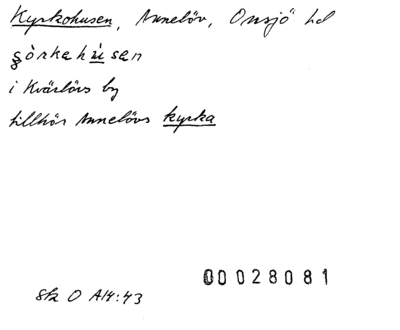 Kyrkohusen, Annelöv, Onsjö hd
şörkahùsan
i Kvärlövs by
tillhör Annelövs kyrka
00028081
Ska O A14:43